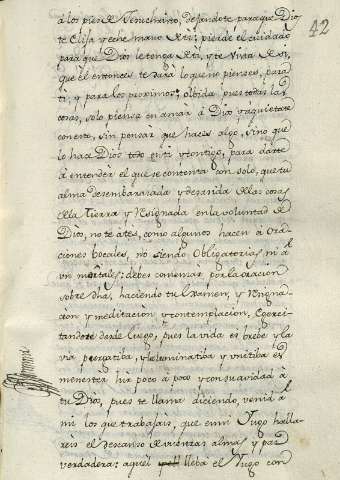 42
á los pies de Jesuchristo, dejandote para que Dios
te Elija y eche mano de ti; pierde el cuidado
para que Dios le tenga de ti, y te viva de si,
que el entonces te dará lo que no pienses, para
ti, y para los proximos; olbida pues todas las
cosas, solo piensa en amar á Dios y aquietate
con este, sin pensar que haces algo, sino que
lo hace Dios todo en ti y contigo, para darte
á entender el que se contenta con solo, que tu
alma desembarazada y desasida de las cosas
de la tierra y Resignada en la voluntad de
Dios, no te ates, como algunos hacen á Ora-
ciones bocales, no siendo Obligatorias, ni á
un mentales: debes comenzar por la oracion
sobre dha, haciendo tu Examen, y Resigna-
cion y meditacion y contemplacion, Exerci-
tandote desde luego, pues la vida es brebe y la
via purgatiba, y luminatiba y unitiba es
menester hir poco á poco y con suavidad á
tu Dios, pues te llama diciendo, venid á
mi los que trabajais, que en mi Yugo halla-
reis el descanso de vuestras almas y paz
verdadera: aquel lleba el Yugo con